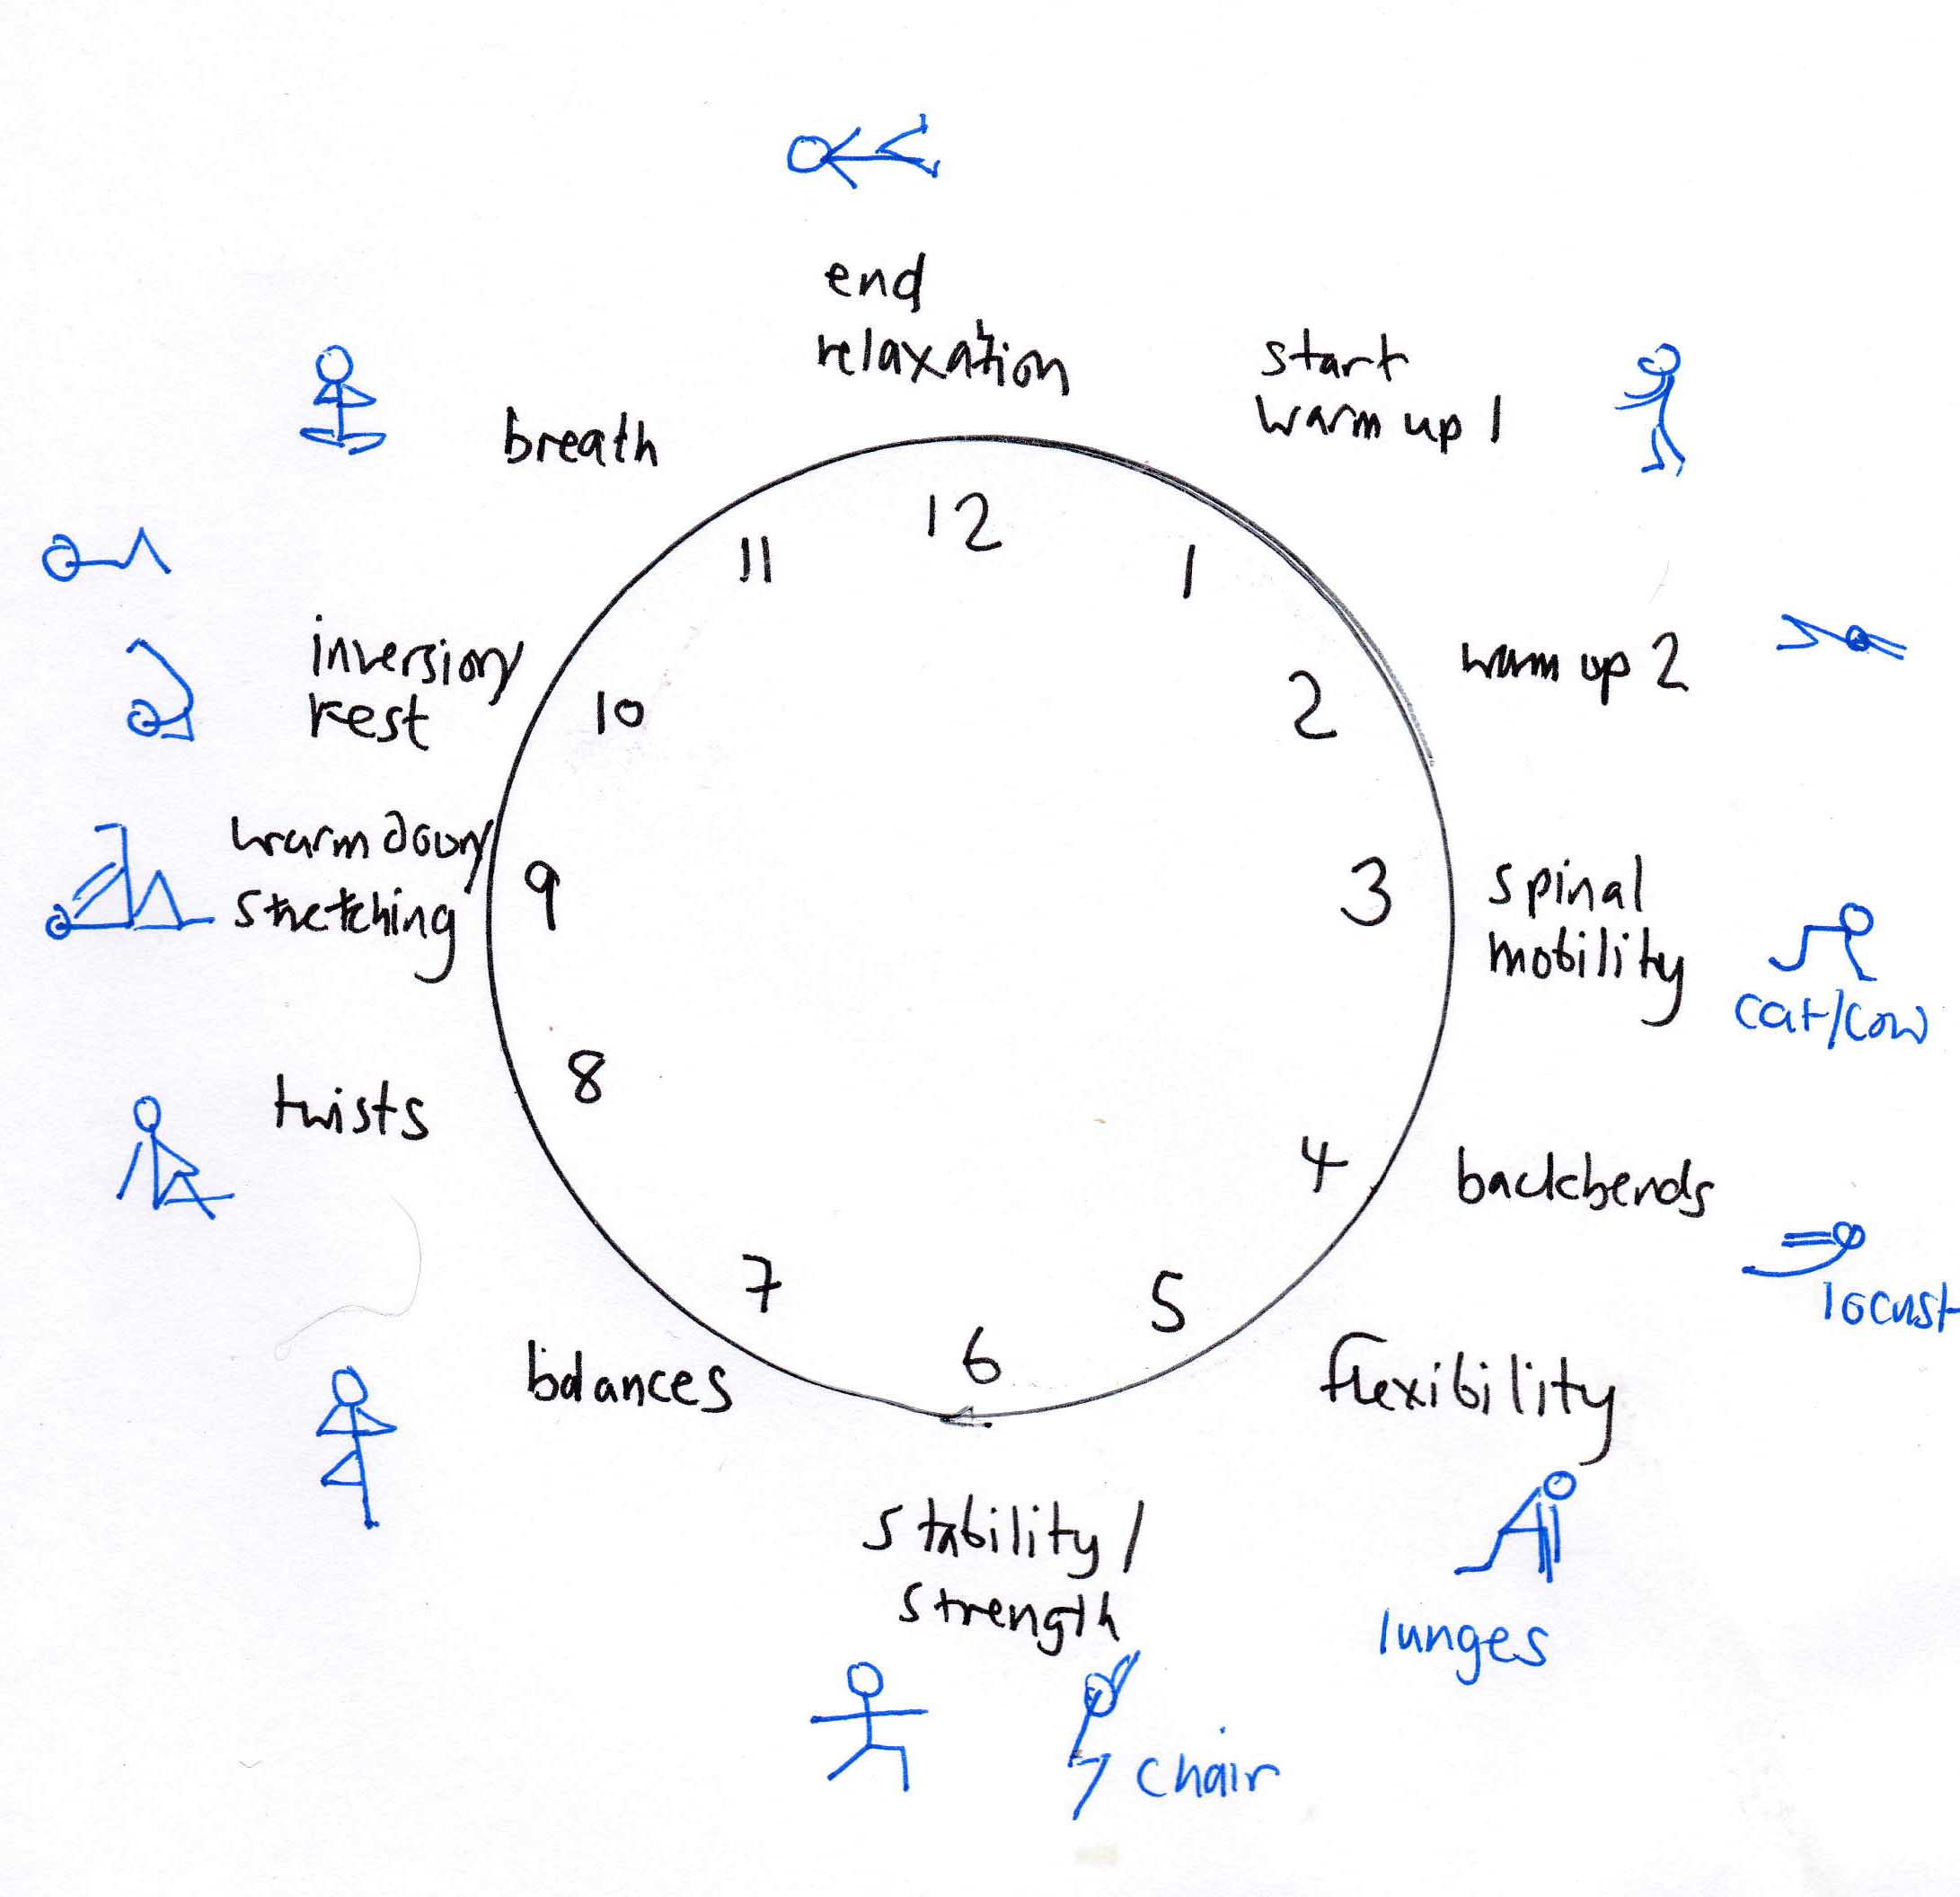 end
relaxation
start
warm up 1
breath
12
11
1
inversion/
rest
10
2
warm up 2
warm down/
stretching
9
3
spinal
mobility
cat/cow
8
twists
4
backbends
locust
7
5
6
balances
flexibility
lunges
stability/
strength
chair